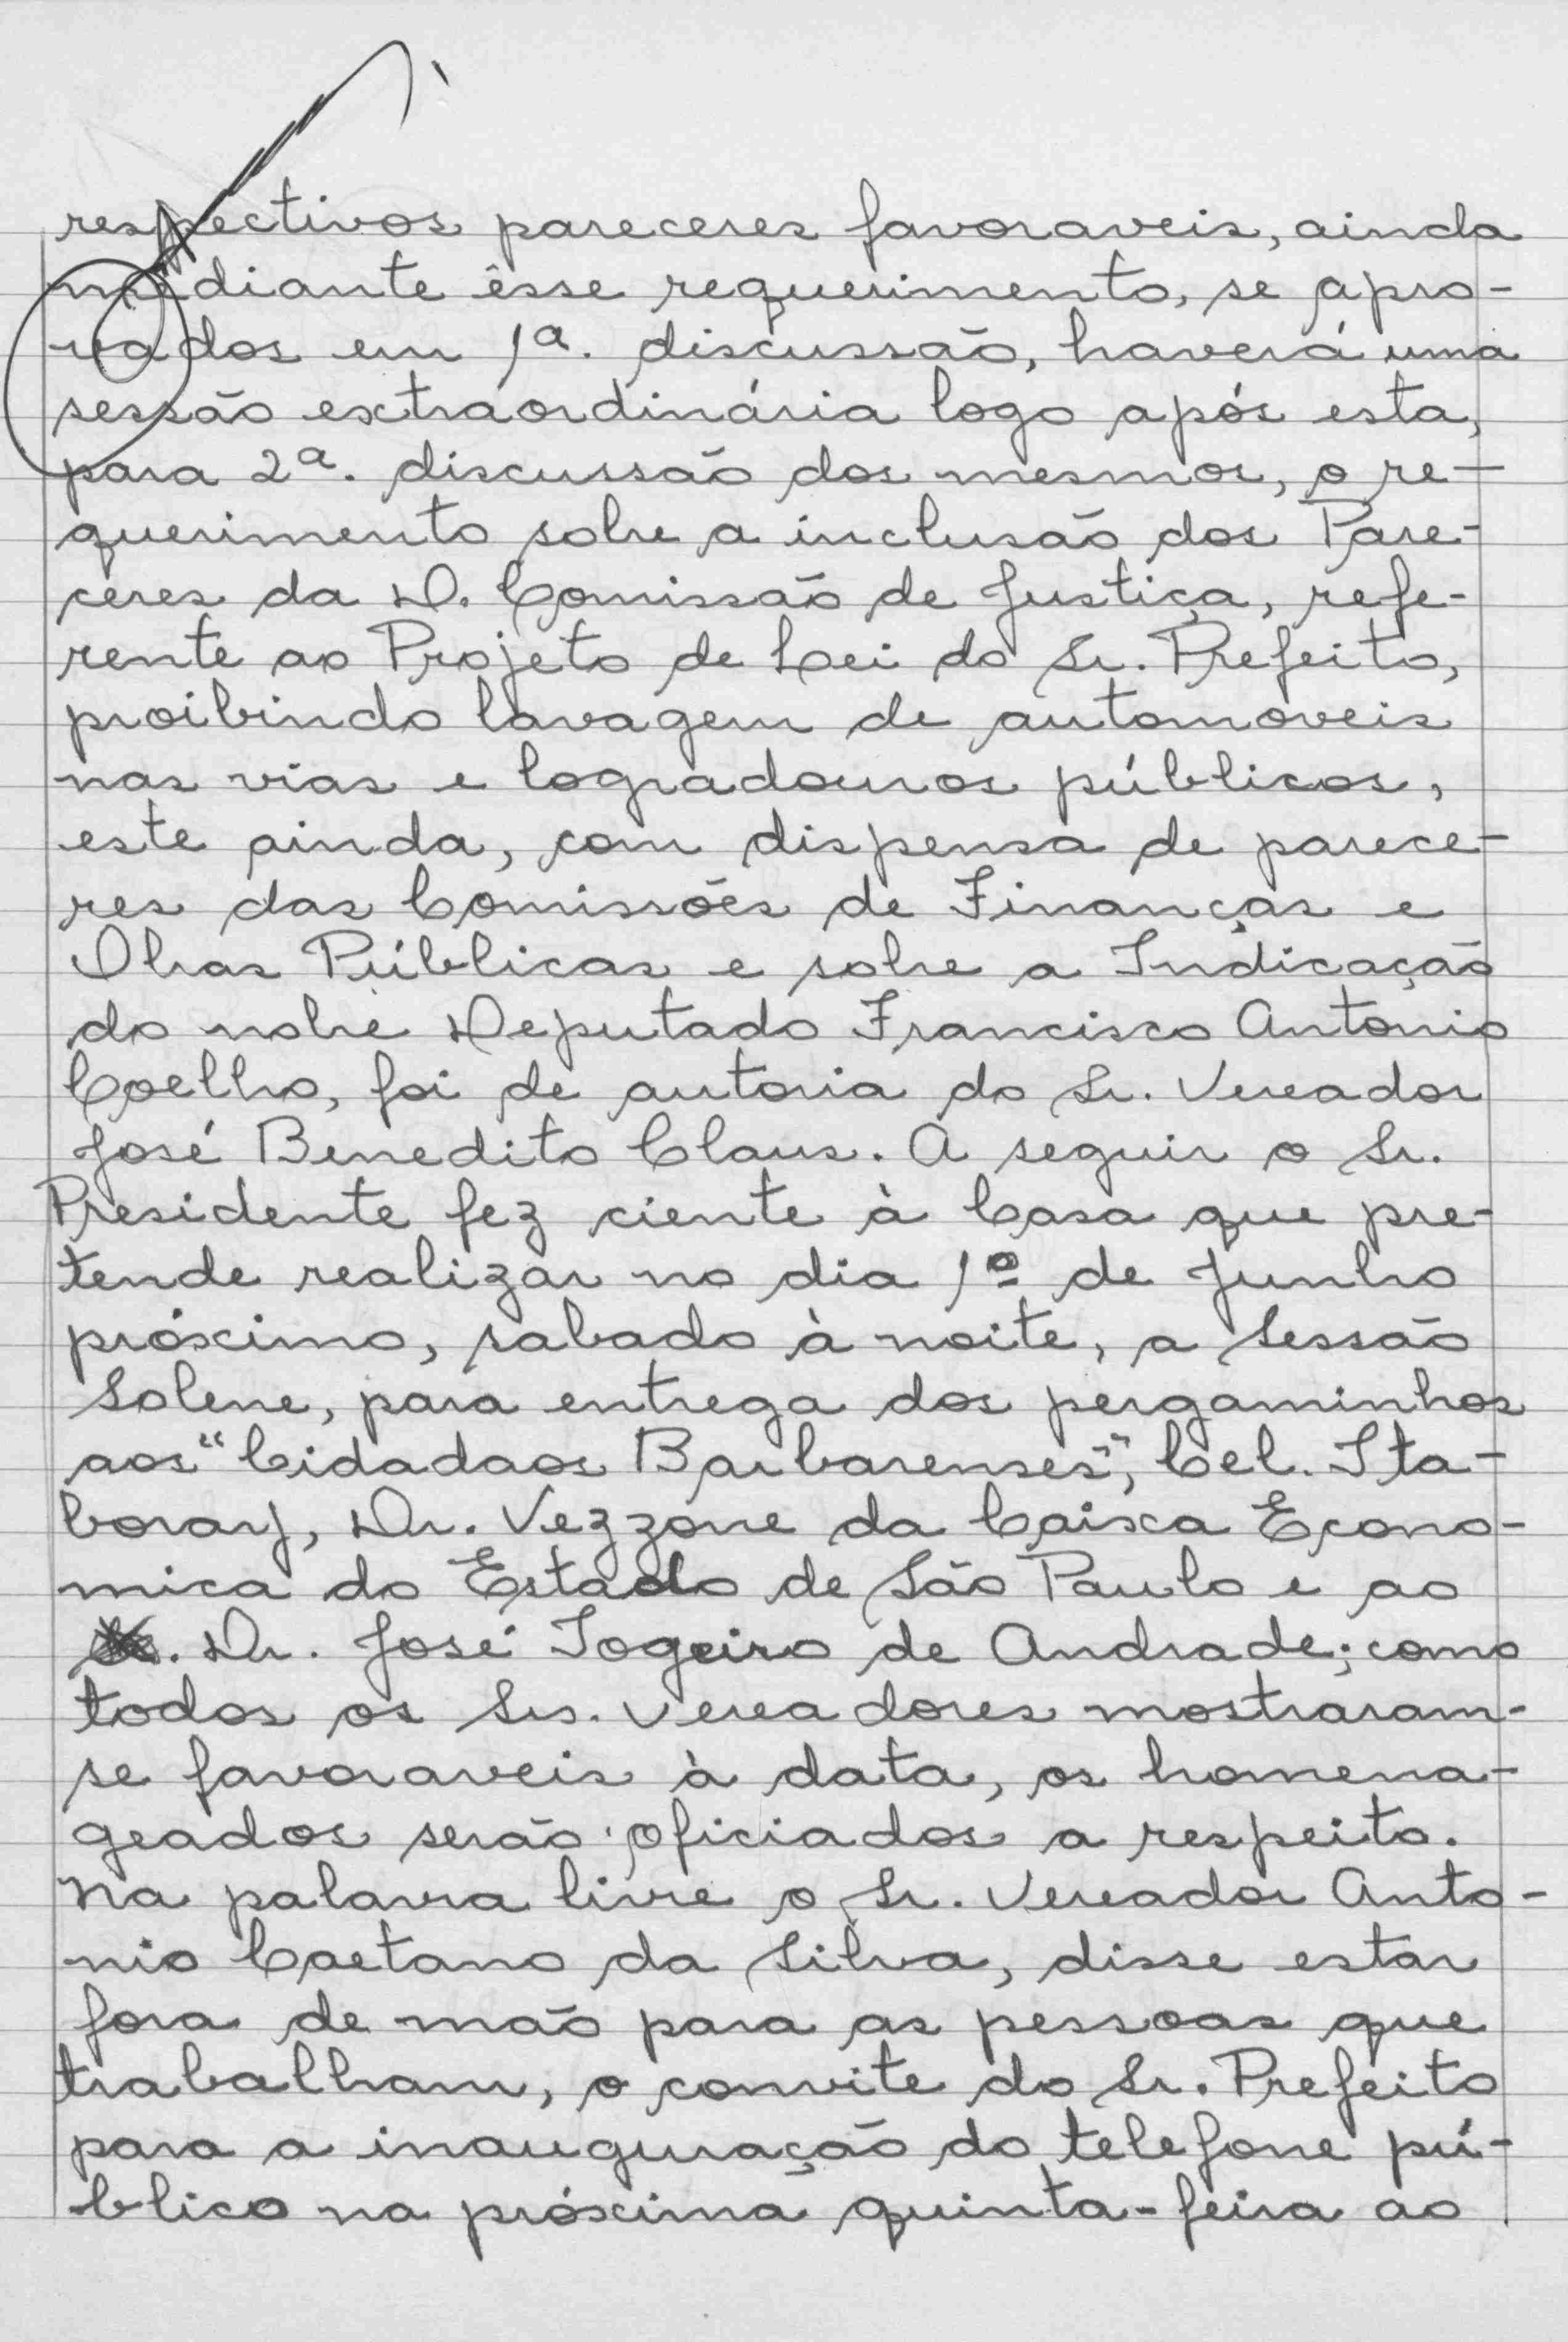 respectivos pareceres favoraveis, ainda
mediante êsse requerimento, se apro-
vados em 1ª. discussão, haverá uma
sessão extraordinária logo após esta,
para 2ª. discussão dos mesmos, o re-
querimento sobre a inclusão dos Pare-
ceres da D. Comissão de Justiça, refe-
rente ao Projeto de Lei do Sr. Prefeito,
proibindo lavagem de automoveis
nas vias e logradouros públicos,
este ainda, com dispensa de parece-
res das Comissões de Finanças e
Obras Públicas e sobre a Indicação
do nobre Deputado Francisco Antonio
Coelho, foi de autoria do Sr. Vereador
José Benedito Claus. A seguir o Sr.
Presidente fez ciente à Casa que pre-
tende realizar no dia 1º de Junho
próximo, sabado à noite, a Sessão
Solene, para entrega dos pergaminhos
aos "Cidadaos Barbarenses", Cel. Ita-
boray, Dr. Vezzone da Caixa Econo-
mica do Estado de São Paulo e ao
Dr. José Togeiro de Andrade; como
todos os Srs. Vereadores mostraram-
se favoraveis à data, os homena-
geados serão oficiados a respeito.
Na palavra livre o Sr. Vereador Anto-
nio Caetano da Silva, disse estar
fora de mão para as pessoas que
trabalham, o convite do Sr. Prefeito
para a inauguração do telefone pú-
blico na próxima quinta-feira ao